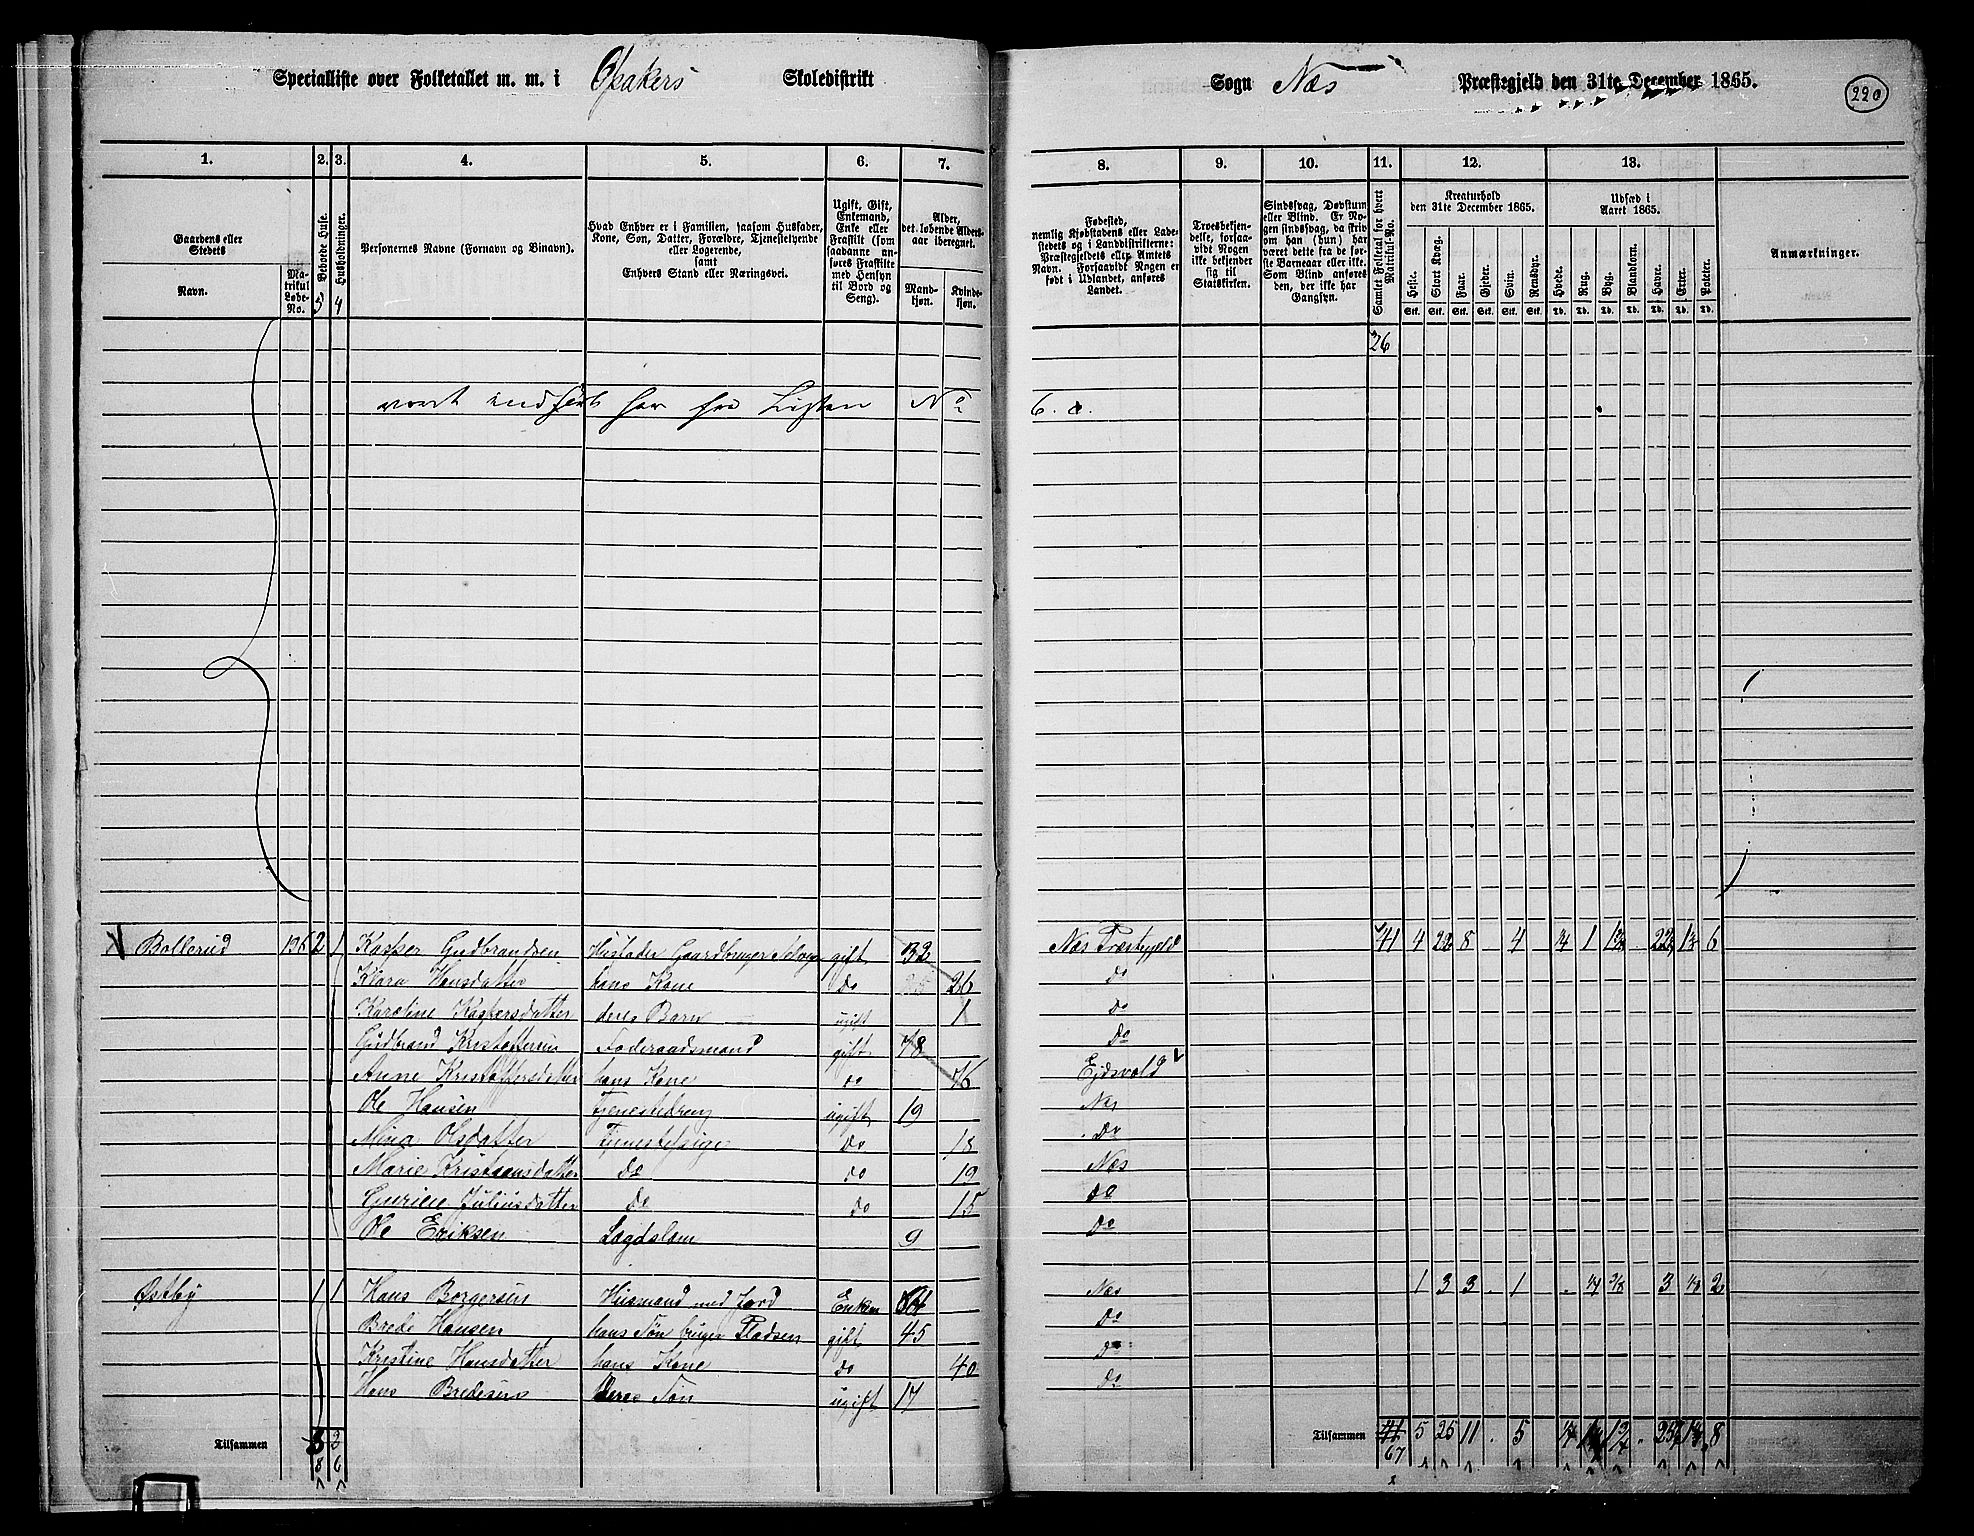 Specialliste over Folketallet m. m. i Opakers Skoledistrikt Sogn Næs Præstegjeld den 31te December 1865. 220
1. 2. 3. 4. 5. 6. 7. 8. 9. 10. 11. 12. 13.
Gaardens eller Stedets
Navn.
Matrikul Løbe-No.
Beboede Huse.
Husholdninger.
Personernes Navne (Fornavn og Binavn).
Hvad Enhver er i Familien, saasom Husfader, Kone, Søn, Datter, Forældre, Tjenestetyende eller Logerende,
samt
Enhvers Stand eller Næringsvei.
Ugift, Gift, Enkemand, Enke eller Fraskilt (som saadanne anføres Fraskilte med Hensyn til Bord og Seng).
Alder, det løbende Aldersaar iberegnet.
Mandkjøn. Kvindekjøn.
Fødested,
nemlig Kjøbstadens eller Ladestedets og i Landdistrikterne: Præstegjeldets eller Amtets Navn. Forsaavidt Nogen er født i Udlandet, anføres Landet.
Troesbekjendelse, forsaavidt Nogen ikke bekjender sig til Statskirken.
Sindssvag, Døvstum eller Blind. Er Nogen sindssvag, da skrives om han (hun) har været dette fra de første Barneaar eller ikke. Som Blind anføres den, der ikke har Gangsyn.
Samlet Folketal for hvert Matrikul-No.
Kreaturhold den 31te December 1865.
Heste. Stort Kvæg. Faar. Gjeder. Svin. Rensdyr.
Udsæd i Aaret 1865.
Hvede. Rug. Byg. Blandkorn. Havre. Erter. Poteter.
Stk. Stk. Stk. Stk. Stk. Stk. Td. Td. Td. Td. Td. Td. Td.
Anmærkninger.
5 4
26
vort indført her fra Listen No 6. a.
Bollerud 196 2 1 Kasper Gudbrandsen Husfader Gaardbruger Selveier gift 32 Næs Præstegjeld 41 4 22 8 . 4 . 1 6
Klara Hansdatter hans Kone do 26 do
Karoline Kaspersdatter deres Barn ugift 1 do
Gudbrand Kristoffersen Føderaadsmand gift 78 do
Anne Kristoffersdatter hans Kone do 76 Ejdsvold
Ole Hansen Tjenestedreng ugift 19 Næs
Mina Olsdatter Tjenestepige do 18 do
Marie Kristiansdatter do do 19 Næs
Gurine Juliusdatter do do 15 do
Ole Eriksen Lægdslem 9 do
Østby 1 1 Hans Borgersen Husmand med Jord Enkem Næs 1 3 3 . 1 . 3 2
Brede Hansen hans Søn bruger Pladsen gift 45 do
Kristine Hansdatter hans Kone do 40 do
Hans Bredesen deres Søn ugift 17 do
Tilsammen 3 2 Tilsammen 41 5 25 11 . 5 8
8 6 67